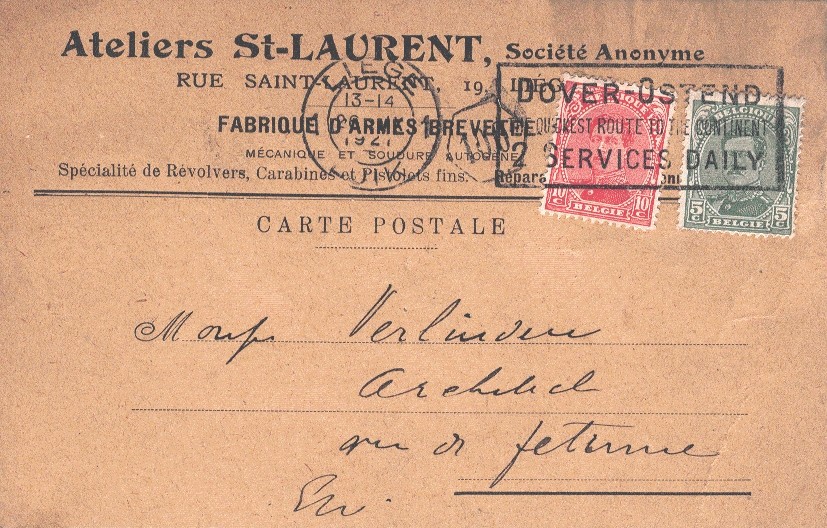 Ateliers St-LAURENT, Société Anonyme
RUE SAINT-LAURENT, 19, LIÉG
FABRIQUE D'ARMES BREVETÉE
MÉCANIQUE ET SOUDURE AUTOGÈNE
Spécialité de Révolvers, Carabines et Pistolets fins. Répara
LIEGE 1
13-14
1921
LUIK
DOVER-OSTEND
THE QUICKEST ROUTE TO THE CONTINENT
2 SERVICES DAILY
BELGIQUE
10 C BELGIE 10 C
BELGIQUE
5 C BELGIE 5 C
CARTE POSTALE
Monsr Verlinden
Architect
rue de